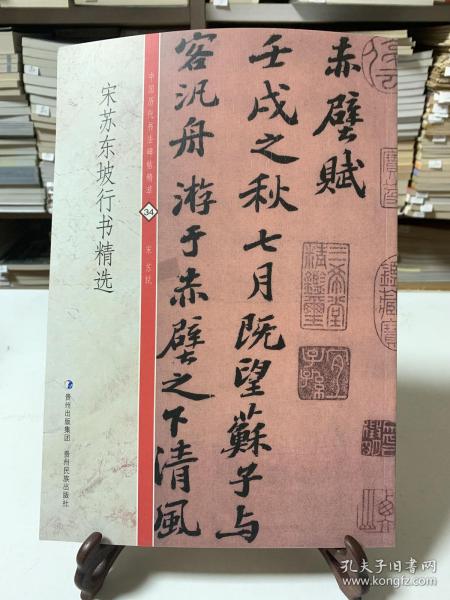 赤壁賦
壬戌之秋七月既望蘇子与
客汎舟游于赤壁之下清風
中国历代书法碑帖精选
34
宋 苏轼
宋苏东坡行书精选
贵州出版集团 贵州民族出版社
三希堂精鑑璽
宜子孫
孔夫子旧书网
www.kongfz.com